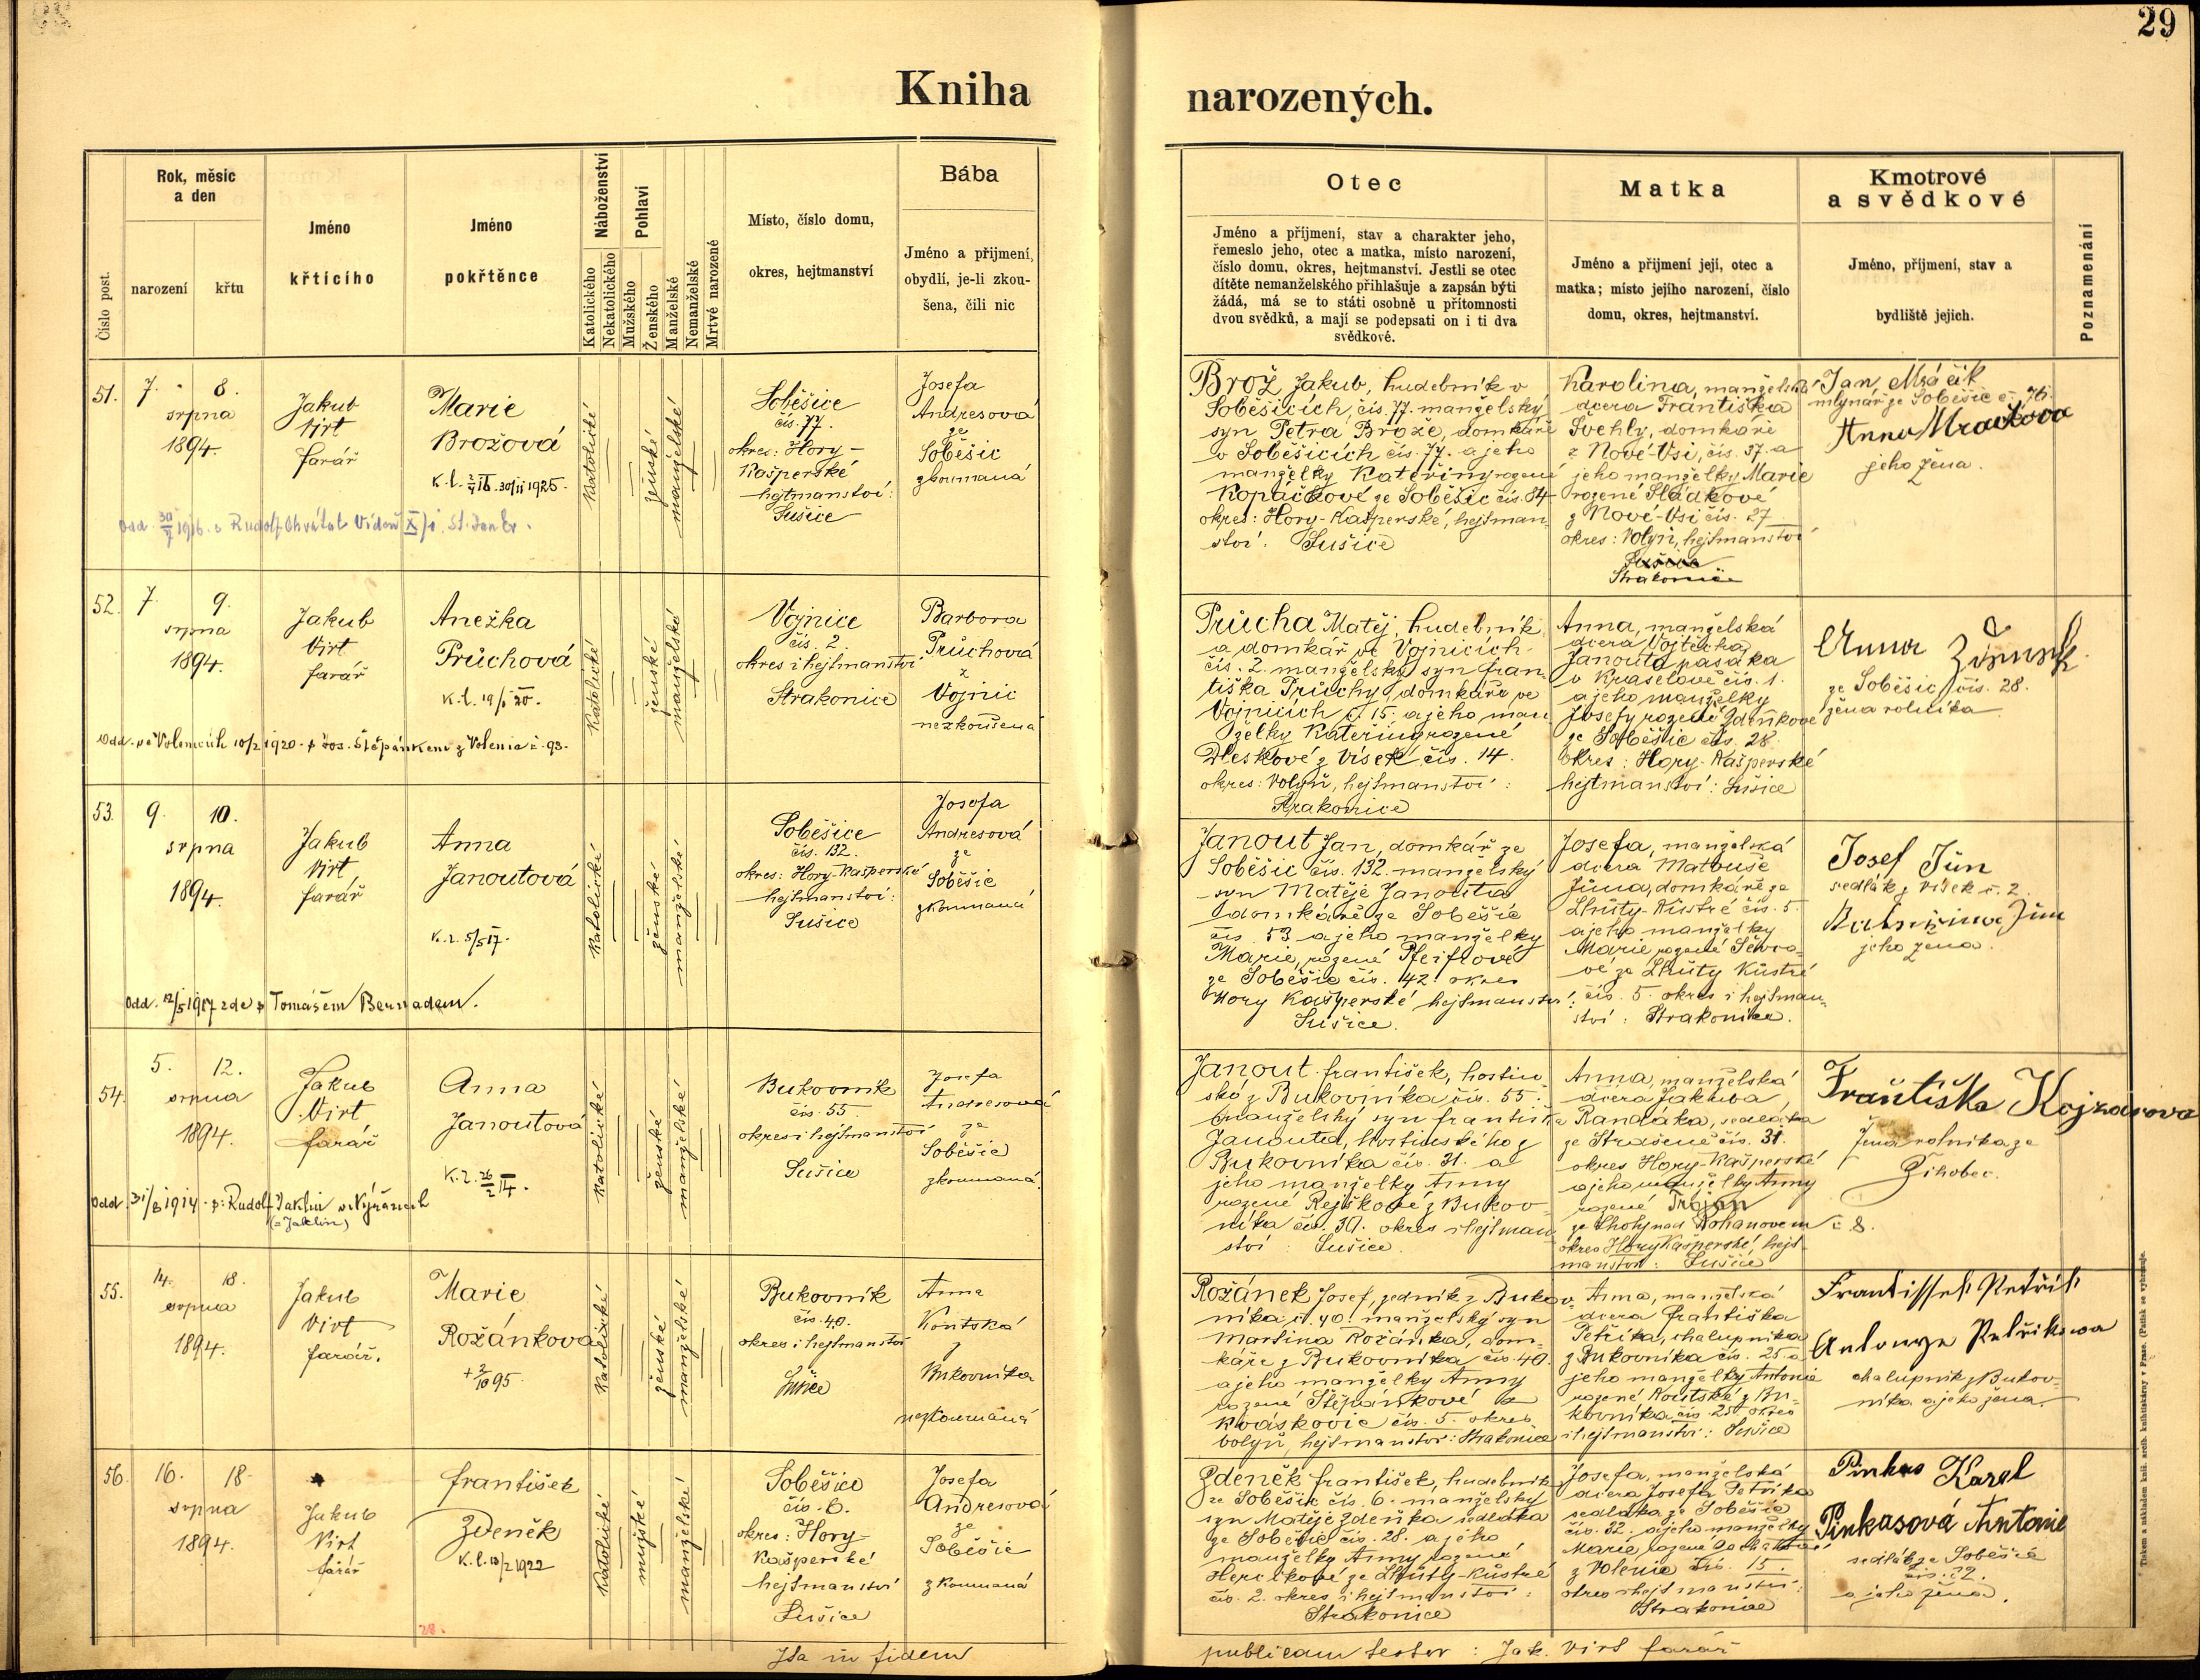 29
Kniha narozených.
Číslo post.
Rok, měsíc
a den
narození
křtu
Jméno
křtícího
Jméno
pokřtěnce
Náboženství
Katolického
Nekatolického
Pohlaví
Mužského
Ženského
Manželské
Nemanželské
Mrtvě narozené
Místo, číslo domu,
okres, hejtmanství
Bába
Jméno a přijmení,
obydlí, je-li zkou-
šena, čili nic
Otec
Jméno a příjmení, stav a charakter jeho,
řemeslo jeho, otec a matka, místo narození,
číslo domu, okres, hejtmanství. Jestli se otec
dítěte nemanželského přihlašuje a zapsán býti
žádá, má se to státi osobně u přítomnosti
dvou svědků, a mají se podepsati on i ti dva
svědkové.
Matka
Jméno a přijmení její, otec a
matka; místo jejího narození, číslo
domu, okres, hejtmanství.
Kmotrové
a svědkové
Jméno, příjmení, stav a
bydliště jejich.
Poznamenání
51.
7. 8.
srpna
1894.
Jakub
Virt
farář
Marie
Brožová
K.l. 30/11 1925.
Odd. 30/7 1916. s Rudolf. Chvátal Vídeň X) i. St. Jan Ev.
katolické
ženské
manželské
Soběšice
čís. 77.
okres: Hory-
Kašperské
hejtmanství:
Sušice
Josefa
Andresová
ze
Soběšic
zkoumaná
Brož Jakub, hudebník v
Soběšicích, čís. 77. manželský
syn Petra Brože, domkáře
v Soběšicích čís. 77. a jeho
manželky Kateřiny rozené
Kopáčkové ze Soběšic čís. 84
okres: Hory-Kašperské, hejtman-
ství: Sušice
Karolina, manželská
dcera Františka
Švehly, domkáře
z Nové-Vsi, čís. 37. a
jeho manželky Marie
rozené Sládkové
z Nové-Vsi čís. 27
okres: Volyň, hejtmanství
Sušice
Strakonice
Jan Mráčik
mlynář ze Soběšic č. 76.
Anna Mračkova
jeho žena.
52.
7. 9.
srpna
1894.
Jakub
Virt
farář
Anežka
Průchová
K.l. 19/1 20.
Odd. ve Volenicích 10/2 1920. s Jos. Štěpánkem z Volenic č. 93.
katolické
ženské
manželské
Vojnice
čís. 2.
okres i hejtmanství
Strakonice
Barbora
Průchová
z
Vojnic
nezkoušená
Průcha Matěj, hudebník
a domkář ve Vojnicích
čís. 2. manželský syn Fran-
tiška Průchy, domkáře ve
Vojnicích č. 15. a jeho man-
želky Kateřiny rozené
Dleskové z Vísek čís. 14.
okres: Volyň, hejtmanství:
Strakonice
Anna, manželská
dcera Vojtěcha
Janouta pasáka
v Kraselově čís. 1.
a jeho manželky
Josefy rozené Zdeňkové
ze Soběšic čís. 28.
Okres: Hory-Kašperské
hejtmanství: Sušice
Anna
ze Soběšic, čís. 28.
žena rolníka
53.
9. 10.
srpna
1894.
Jakub
Virt
farář
Anna
Janoutová
K.l. 5/5 17.
Odd. 12/5 1917 zde s Tomášem Bernadem.
katolické
ženské
manželské
Soběšice
čís. 132.
okres: Hory-Kašperské
hejtmanství:
Sušice
Josefa
Andresová
ze
Soběšic
zkoumaná
Janout Jan, domkář ze
Soběšic čís. 132. manželský
syn Matěje Janouta
domkáře ze Soběšic
čís. 53 a jeho manželky
Marie, rozené Pfeifrové
ze Soběšic čís. 42. okres
Hory Kašperské hejtmanství:
Sušice.
Josefa, manželská
dcera Matouše
Jůna, domkáře ze
Lhůty-Kůstré čís. 5.
a jeho manželky
Marie, rozené
vé ze Lhůty Kůstré
čís. 5. okres i hejtman-
ství: Strakonice.
Josef Jůn
sedlák z Vísek č. 2.
Jůn
jeho žena.
54.
5. 12.
srpna
1894.
Jakub
Virt
farář
Anna
Janoutová
K.l. 26/2 14.
Odd. 31/8 1914. s: Rudolf Jaklin v Nýřanech
(= Jaklin)
katolické
ženské
manželské
Bukovník
čís. 55
okres i hejtmanství
Sušice
Josefa
Andresová
ze
Soběšic
zkoumaná.
Janout František, hostin-
ský z Bukovníka čís. 55.
manželský syn Františka
Janouta, hostinského z
Bukovníka čís. 31. a
jeho manželky Anny
rozené Rejškové z Bukov-
níka čís. 30. okres i hejtman-
ství: Sušice.
Anna, manželská
dcera Jakuba
Randáka, sedláka
ze Strašeně čís. 31.
okres Hory-Kašperské
a jeho manželky Anny
rozené Trojan
ze Lhoty nad Rohanovem č. 8.
okres Hory Kašperské, hejt-
manství: Sušice
Františka
žena rolníka ze
Žihobec.
55.
14. 18.
srpna
1894.
Jakub
Virt
farář.
Marie
Rožánkova
+ 2/10 95.
katolické
ženské
manželské
Bukovník
čís. 40.
okres i hejtmanství
Sušice
Anna
Koutská
z
Bukovníka
nezkoumaná
Rožánek Josef, zedník z Bukov-
níka č. 40. manželský syn
Martina Rožánka, dom-
káře z Bukovníka čís. 40.
a jeho manželky Anny
rozené Štěpánkové z
Kváskovic čís. 5. okres
Volyň, hejtmanství: Strakonice
Anna, manželská
dcera Františka
Petříka, chalupníka
z Bukovníka čís. 25 a
jeho manželky Antonie
rozené Koutské z Bu-
kovníka čís. 25 okres
i hejtmanství: Sušice
Frantissek Petřík
Antonye Petřikowa
chalupník z Bukov-
níka a jeho žena.
56.
16. 18.
srpna
1894.
Jakub
Virt
farář
František
Zdeněk
K.l. 10/2 1922
28.
katolické
mužské
manželské
Soběšice
čís. 6.
okres: Hory-
Kašperské
hejtmanství
Sušice
Josefa
Andresová
ze
Soběšic
zkoumaná
Zdeněk František, hudebník
ze Soběšic čís. 6. manželský
syn Matěje Zdeňka sedláka
ze Soběšic čís. 28. a jeho
manželky Anny rozené
Herclíkové ze Lhůty-Kůstré
čís. 2. okres i hejtmanství:
Strakonice
Josefa, manželská
dcera Josefa Petříka
sedláka ze Soběšic
čís. 32. a jeho manželky
Marie, rozené
z Volenic čís. 15.
okres i hejtmanství:
Strakonice
Pinkas Karel
Pinkasová Antonie
sedlák ze Soběšic
čís. 32.
a jeho žena.
Ita in fidem publicam testor: Jak. Virt farář